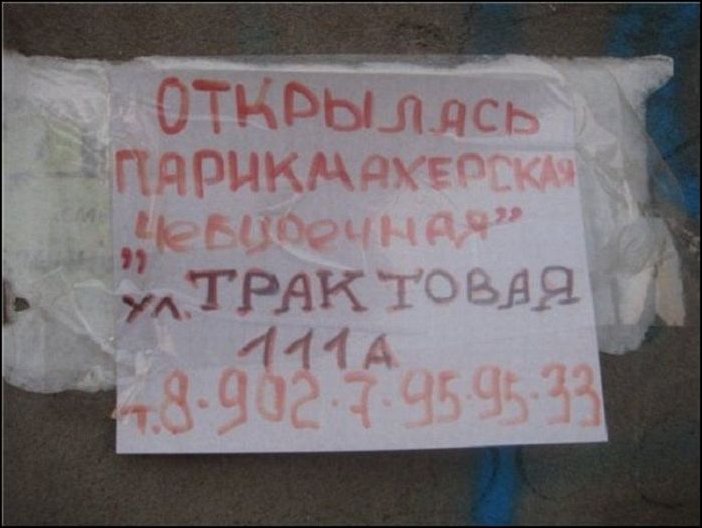 ОТКРЫЛАСЬ
ПАРИКМАХЕРСКАЯ
„Чебуречная”
ул. ТРАКТОВАЯ
111А
т.8-902-7-95-95-33